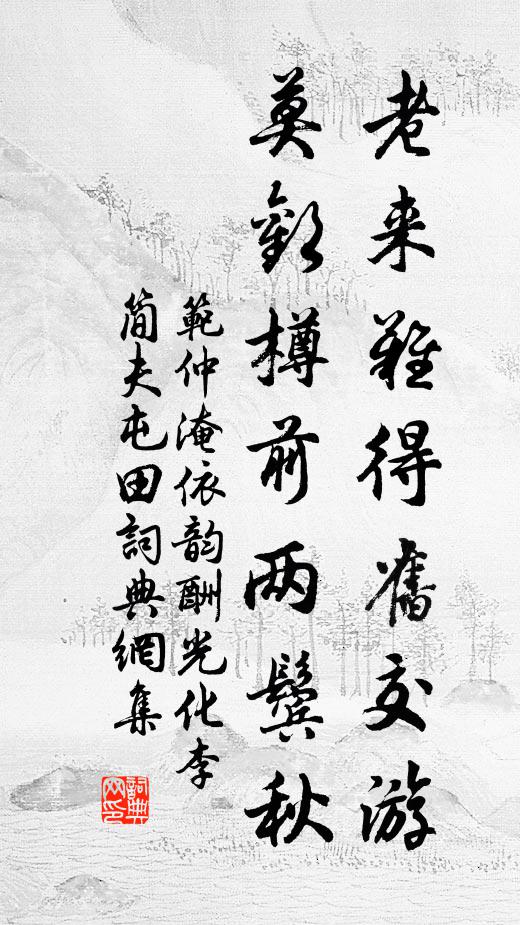 老来難得舊交游
莫歎樽前两鬢秋
範仲淹依韵酬光化李
簡夫屯田詞典網集
詞典网印